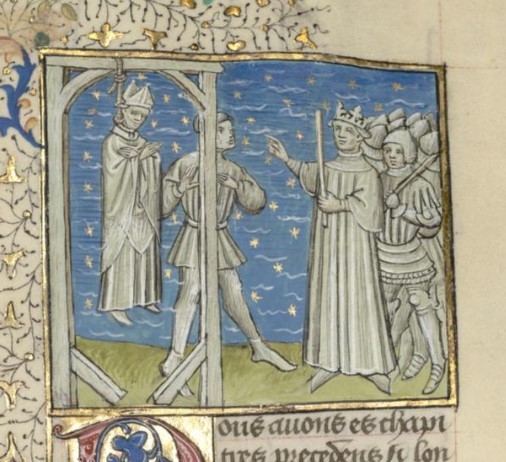 Nous auons es chapi
tres precedens se lon